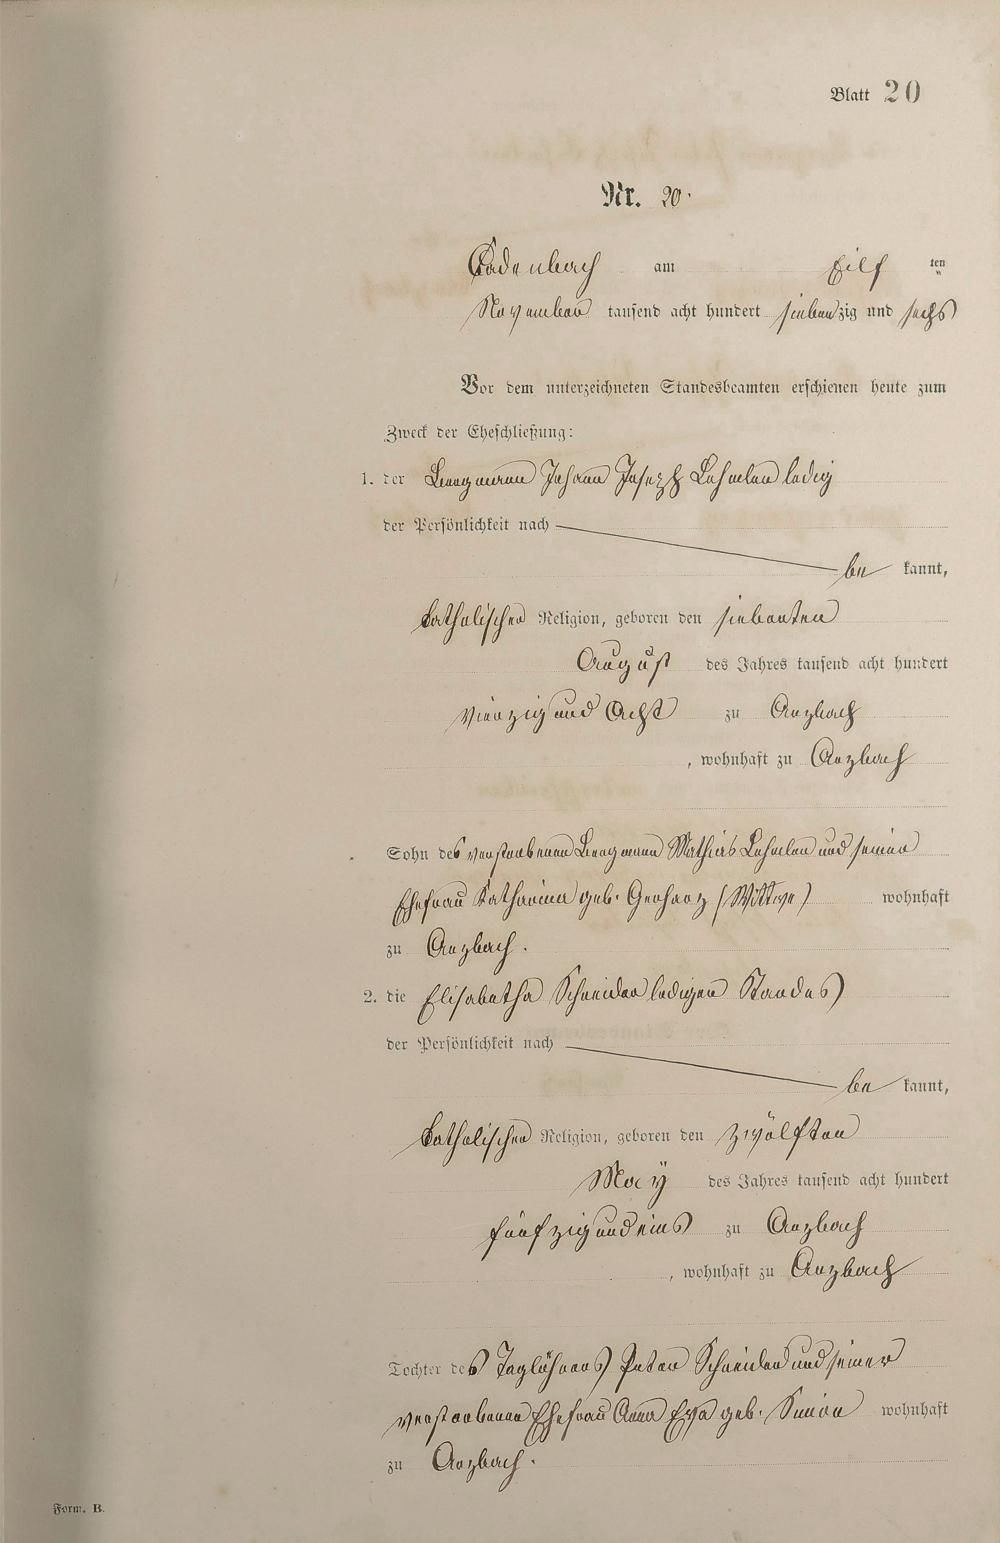 Blatt 20
Nr. 20.
Cadenbach am Eilf ten
November tausend acht hundert siebenzig und sechs
Vor dem unterzeichneten Standesbeamten erschienen heute zum
Zweck der Eheschließung:
1. der Bergmann Johann Joseph Lehmler ledig
der Persönlichkeit nach
be kannt,
katholischer Religion, geboren den siebenten
August des Jahres tausend acht hundert
vierzig und Acht zu Arzbach
, wohnhaft zu Arzbach
Sohn des verstorbenen Bergmann Mathias Lehmler und seiner
Ehefrau Katharina geb. Gerharz (Wittwe) wohnhaft
zu Arzbach.
2. die Elisabetha Schneider ledigen Standes
der Persönlichkeit nach
be kannt,
katholischer Religion, geboren den zwölften
May des Jahres tausend acht hundert
fünfzig und eins zu Arzbach
, wohnhaft zu Arzbach
Tochter des Taglöhners Peter Schneider und seiner
verstorbenen Ehefrau Anna Eva geb. wohnhaft
zu Arzbach.
Form. B.